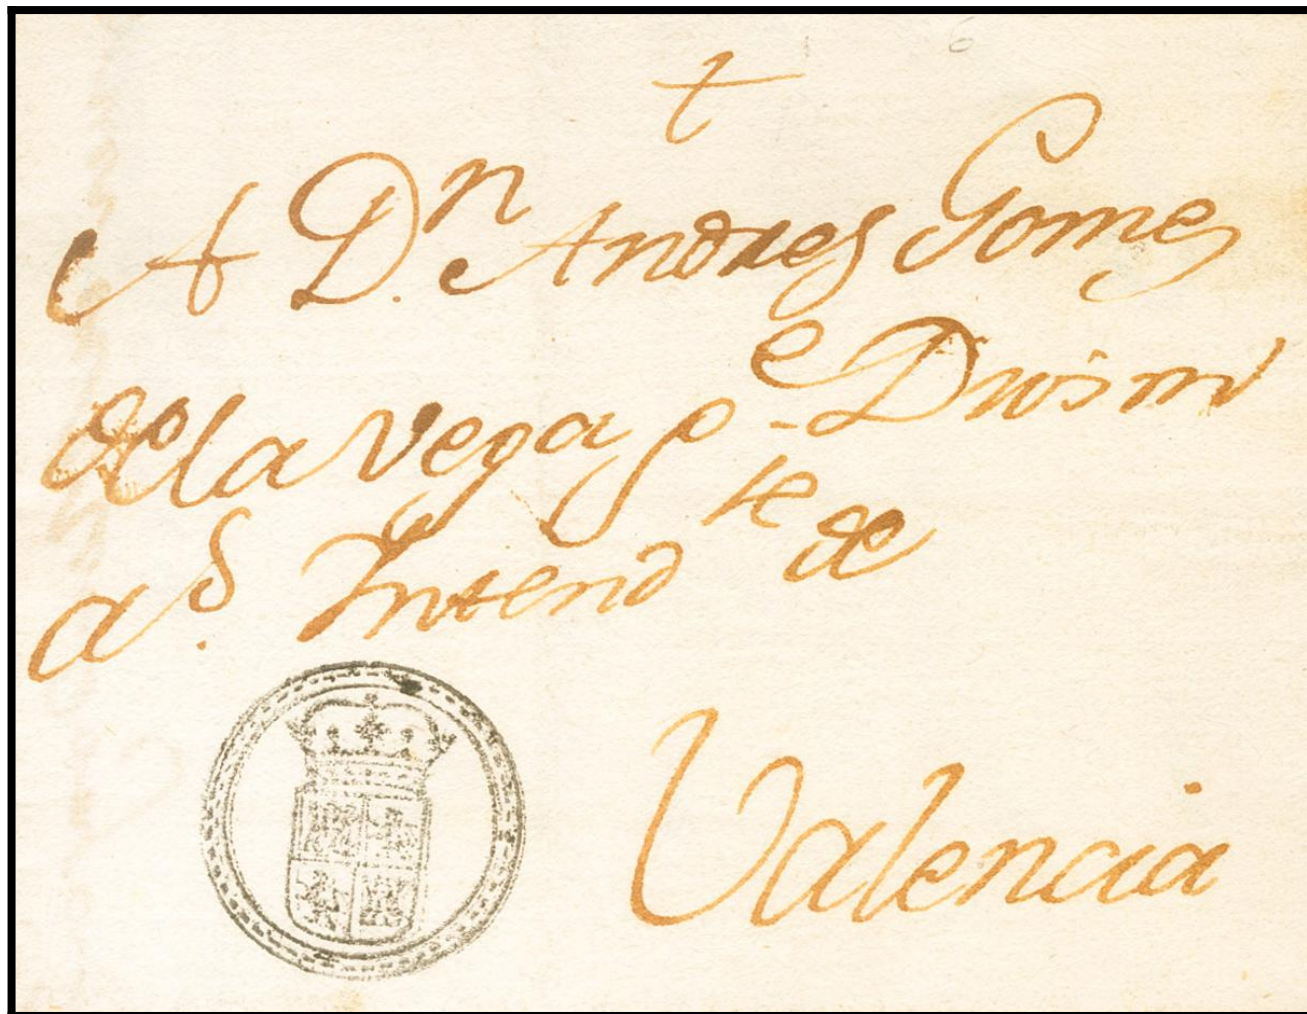 A Dn. Andres Gomez
de la Vega
Intendte de
Valencia